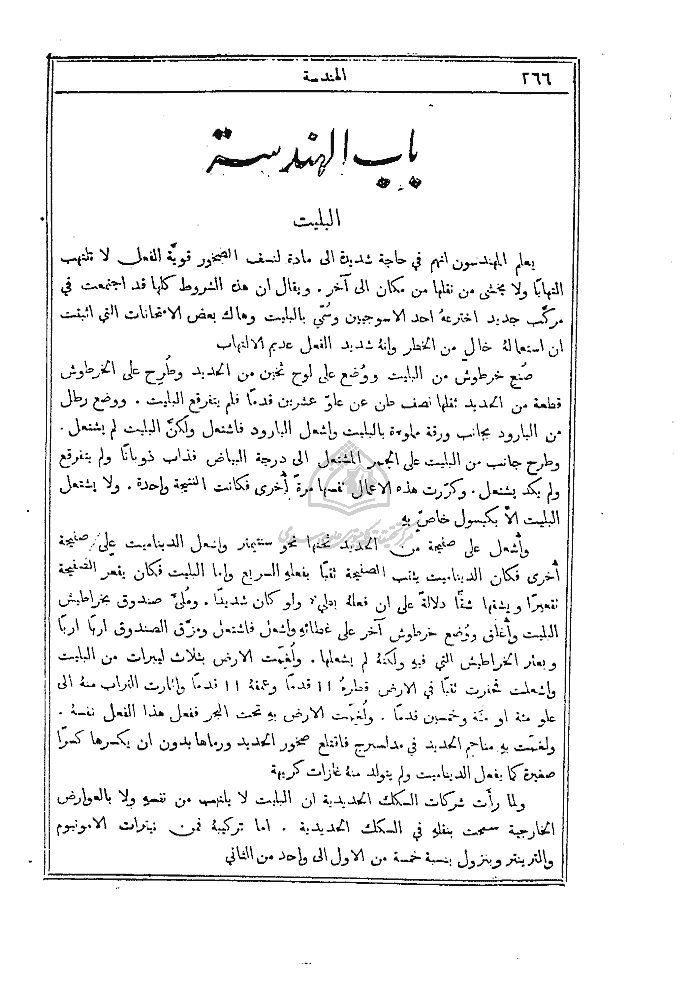 ٢٦٦
الهندسة
باب الهندسة
البليت
يعلم المهندسون انهم في حاجة شديدة الى مادة لنسف الصخور قويَّة الفعل لا تلتهب
التهابًا ولا يخشى من نقلها من مكان الى آخر . ويقال ان هذه الشروط كلها قد اجتمعت في
مركَّب جديد اخترعهُ احد الاسوجيين وسُمّي بالبليت وهاك بعض الامتحانات التي اثبتت
ان استعمالهُ خالٍ من الخطر وانهُ شديد الفعل عديم الالتهاب
صُنع خرطوش من البليت ووُضع على لوح ثخين من الحديد وطُرح على الخرطوش
قطعة من الحديد ثقلها نصف طن عن علوّ عشرين قدمًا فلم يتفرقع البليت . ووضع رطل
من البارود بجانب ورقة مملوءة بالبليت واشعل البارود فاشتعل ولكنَّ البليت لم يشتعل .
وطرح جانب من البليت على الجمر المشتعل الى درجة البياض فذاب ذوبانًا ولم يتفرقع
ولم يكد يشتعل . وكرّرت هذه الاعمال نفسها مرةً أخرى فكانت النتيجة واحدة . ولا يشتعل
البليت الاَّ بكبسول خاصّ بهِ
وأشعل على صفيحة من الحديد ثخنها نحو سنتيمتر واشعل الديناميت على صفيحة
أخرى فكان الديناميت يثقب الصفيحة ثقبًا بفعلهِ السريع واما البليت فكان يقعّر الصفيحة
تقعيرًا ويشقها شقًّا دلالةً على ان فعلهُ بطيء ولو كان شديدًا . ومُلئ صندوق بخراطيش
البليت وأُغلق ووُضع خرطوش آخر على غطائهِ واشعل فاشتعل ومزّق الصندوق اربًا اربًا
وبعثر الخراطيش التي فيهِ ولكنهُ لم يشعلها . وأُلغمت الارض بثلاث ليبرات من البليت
واشعلت فحفرت ثقبًا في الارض قطرهُ ١١ قدمًا وعمقهُ ١١ قدمًا واثارت التراب منهُ الى
علو مئة او مئة وخمسين قدمًا . وأُلغمت الارض بهِ تحت البحر ففعل هذا الفعل نفسهُ .
ولغمت بهِ مناجم الحديد في مدلسبرج فاقتلع صخور الحديد ورماها بدون ان يكسرها كسرًا
صغيرة كما يفعل الديناميت ولم يتولد منهُ غازات كريهة
ولما رأت شركات السكك الحديدية ان البليت لا يلتهب من نفسهِ ولا بالعوارض
الخارجية سمحت بنقلهِ في السكك الحديدية . اما تركيبهُ فمن نيترات الامونيوم
والتريـنتر وبنزول بنسبة خمسة من الاول الى واحد من الثاني